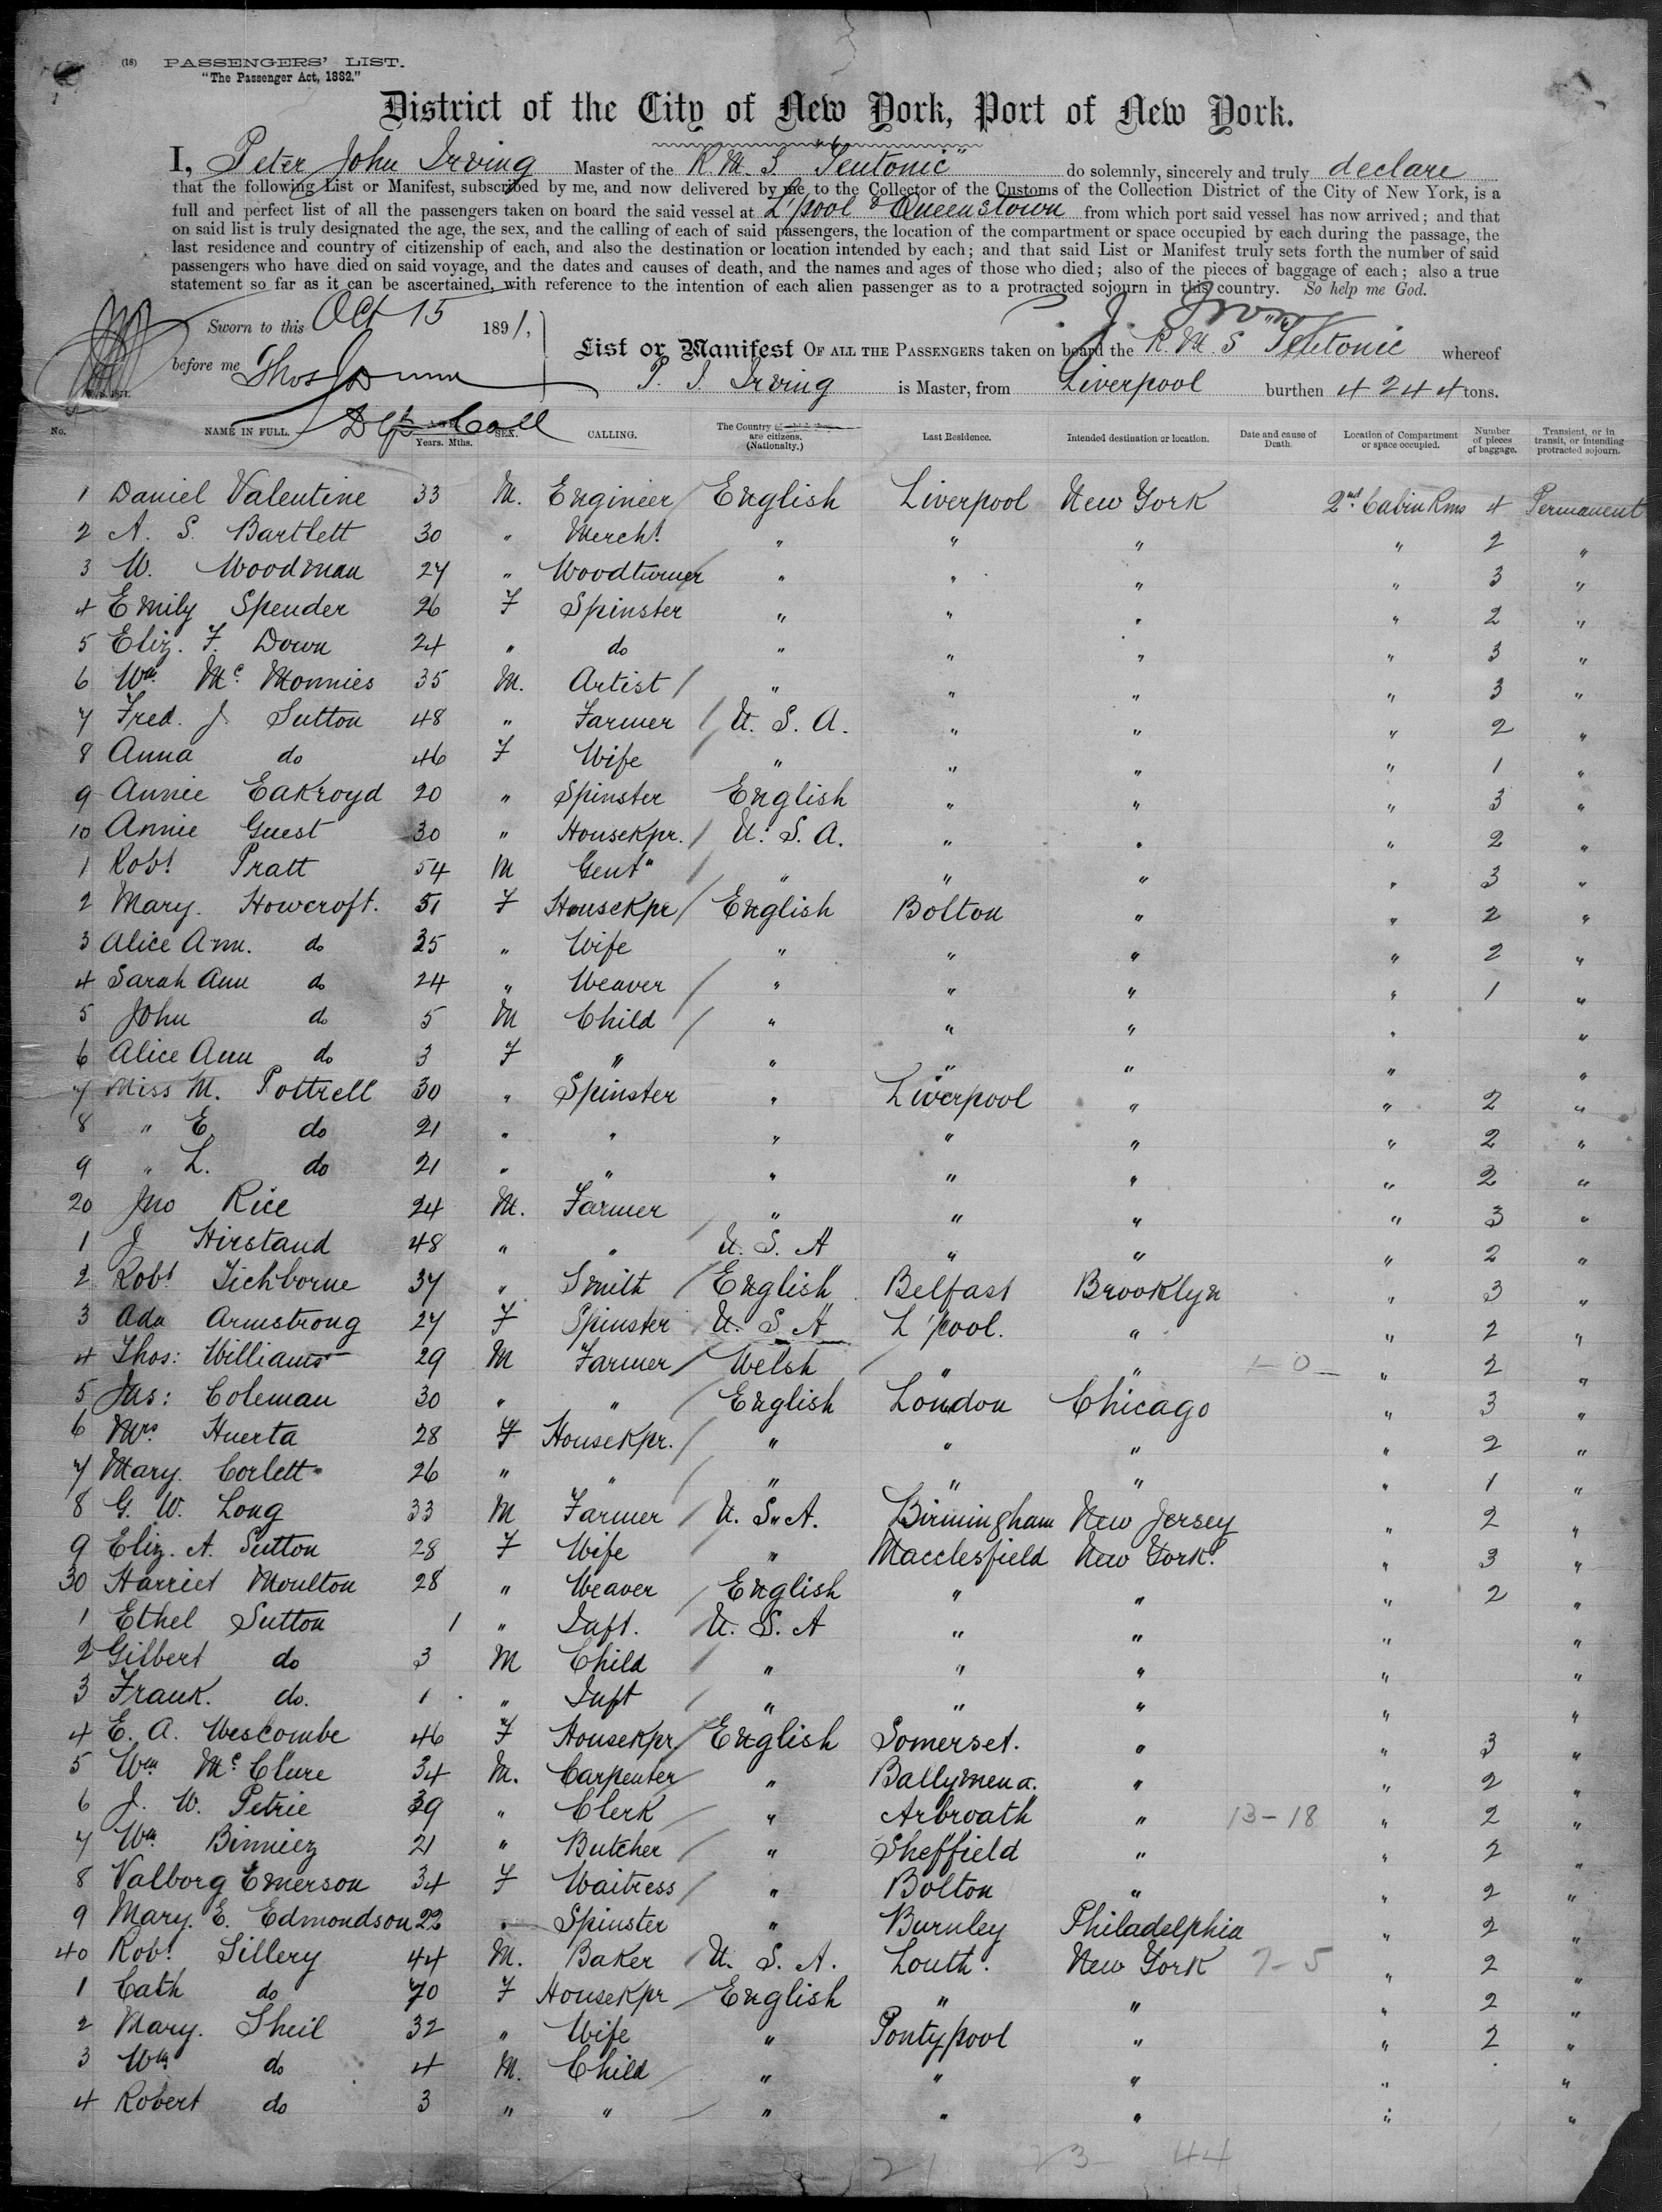 (18) PASSENGERS' LIST.
"The Passenger Act, 1882."
District of the City of New York, Port of New York.
I, Peter John Irving Master of the R. M. S. "Teutonic" do solemnly, sincerely and truly declare
that the following List or Manifest, subscribed by me, and now delivered by me, to the Collector of the Customs of the Collection District of the City of New York, is a
full and perfect list of all the passengers taken on board the said vessel at L'pool & Queenstown from which port said vessel has now arrived; and that
on said list is truly designated the age, the sex, and the calling of each of said passengers, the location of the compartment or space occupied by each during the passage, the
last residence and country of citizenship of each, and also the destination or location intended by each; and that said List or Manifest truly sets forth the number of said
passengers who have died on said voyage, and the dates and causes of death, and the names and ages of those who died; also of the pieces of baggage of each; also a true
statement so far as it can be ascertained, with reference to the intention of each alien passenger as to a protracted sojourn in this country. So help me God.
P. J. Irving
Sworn to this Oct 15 1891,
before me Thos Dunn
Dep Coll
List or Manifest OF ALL THE PASSENGERS taken on board the R. M. S "Teutonic whereof
P. J. Irving is Master, from Liverpool burthen 4244 tons.
No. NAME IN FULL. AGE Years. Mths. SEX. CALLING. The Country of which they are citizens. (Nationality.) Last Residence. Intended destination or location. Date and cause of Death. Location of Compartment or space occupied. Number of pieces of baggage. Transient, or in transit, or intending protracted sojourn.
1 Daniel Valentine 33 M. Engineer / English Liverpool New York 2nd Cabin Rms 4 Permanent
2 A. S. Bartlett 30 " Mercht " " " " 2 "
3 W. Woodman 27 " Woodturner / " " " " 3 "
4 Emily Spender 26 F Spinster " " " " 2 "
5 Eliz. F. Down 24 " do " " " " 3 "
6 Wm Mc Monnies 35 M. Artist / " " " " 3 "
7 Fred. J. Sutton 48 " Farmer / U. S. A. " " " 2 "
8 Anna do 46 F Wife " " " " 1 "
9 Annie Eakroyd 20 " Spinster English " " " 3 "
10 Annie Guest 30 " Housekpr. / U. S. A. " " " 2 "
1 Robt Pratt 54 M Gent" / " " " " 3 "
2 Mary. Howcroft. 51 F Housekpr / English Bolton " " 2 "
3 Alice Ann. do 25 " Wife " " " " 2 "
4 Sarah Ann do 24 " Weaver / " " " " 1 "
5 John do 5 M Child / " " " " "
6 Alice Ann do 3 F " " " " " "
7 Miss M. Pottrell 30 " Spinster " Liverpool " " 2 "
8 " E. do 21 " " " " " " 2 "
9 " L. do 21 " " " " " " 2 "
20 Jno Rice 24 M. Farmer / " " " " 3 "
1 J Hirstand 48 " " U. S. A " " " 2 "
2 Robt Tichborne 37 " Smith / English Belfast Brooklyn " 3 "
3 Ada Armstrong 27 F Spinster U. S A L'pool. " " 2 "
4 Thos: Williams 29 M Farmer / Welsh / " " 1-0- " 2 "
5 Jas: Coleman 30 " " / English London Chicago " 3 "
6 Mrs Huerta 28 F Housekpr. / " " " " 2 "
7 Mary. Corlett 26 " " / " " " " 1 "
8 G. W. Long 33 M Farmer / U. S. A. Birmingham New Jersey " 2 "
9 Eliz. A. Sutton 28 F Wife " Macclesfield New York. " 3 "
30 Harriet Moulton 28 " Weaver / English " " " 2 "
1 Ethel Sutton 1 " Inft. / U. S. A " " " "
2 Gilbert do 3 M Child / " " " " "
3 Frank. do. 1 " Inft / " " " " "
4 E. A. Wescombe 46 F Housekpr. / English Somerset. " " 3 "
5 Wm McClure 34 M. Carpenter / " Ballymena. " " 2 "
6 J. W. Petrie 39 " Clerk / " Arbroath " 13-18 " 2 "
7 Wm Binniez 21 " Butcher / " Sheffield " " 2 "
8 Valborg Emerson 34 F Waitress / " Bolton " " 2 "
9 Mary. E. Edmondson 22 " Spinster " Burnley Philadelphia " 2 "
40 Robt Sillery 44 M. Baker / U. S. A. Louth. New York 7-5 " 2 "
1 Cath do 70 F Housekpr / English " " " 2 "
2 Mary. Sheil 32 " Wife " Pontypool " " 2 "
3 Wm do 4 M. Child / " " " " "
4 Robert do 3 " " / " " " " "
21 23 44